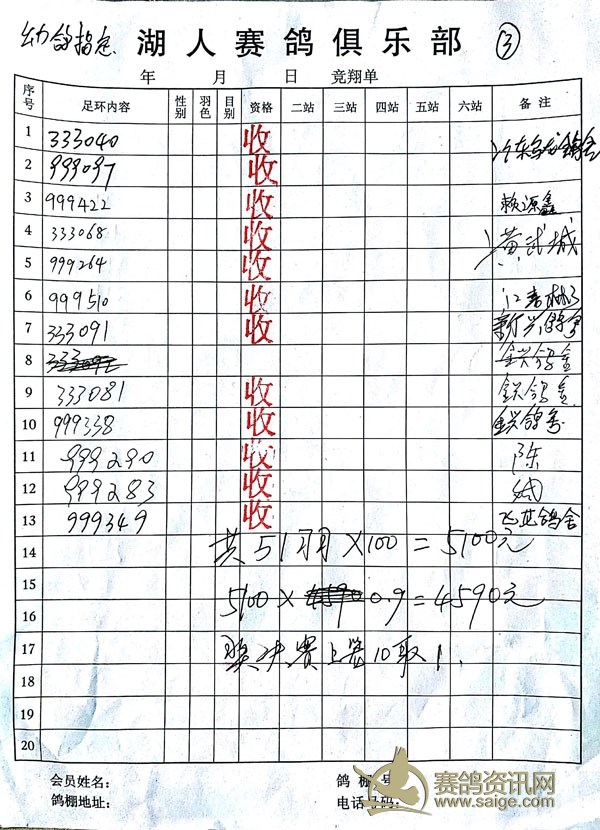 幼鸽指定 湖人赛鸽俱乐部 ③
年 月 日 竞翔单
序号 足环内容 性别 羽色 目别 资格 二站 三站 四站 五站 六站 备注
1 333040 收
2 999097 收
3 999422 收 赖源鑫
4 333068 收 黄武城
5 999264 收
6 999510 收
7 333091 收 新兴鸽舍
8
9 333081 收
10 999338 收
11 999290 收 陈
12 999283 收
13 999349 收
14 共51羽×100=5100元
15
16 5100× 0.9=4590元
17 奖决赛上笼10取1.
18
19
20
会员姓名: 鸽棚 号:
鸽棚地址: 电话号码:
赛鸽资讯网
www.saige.com